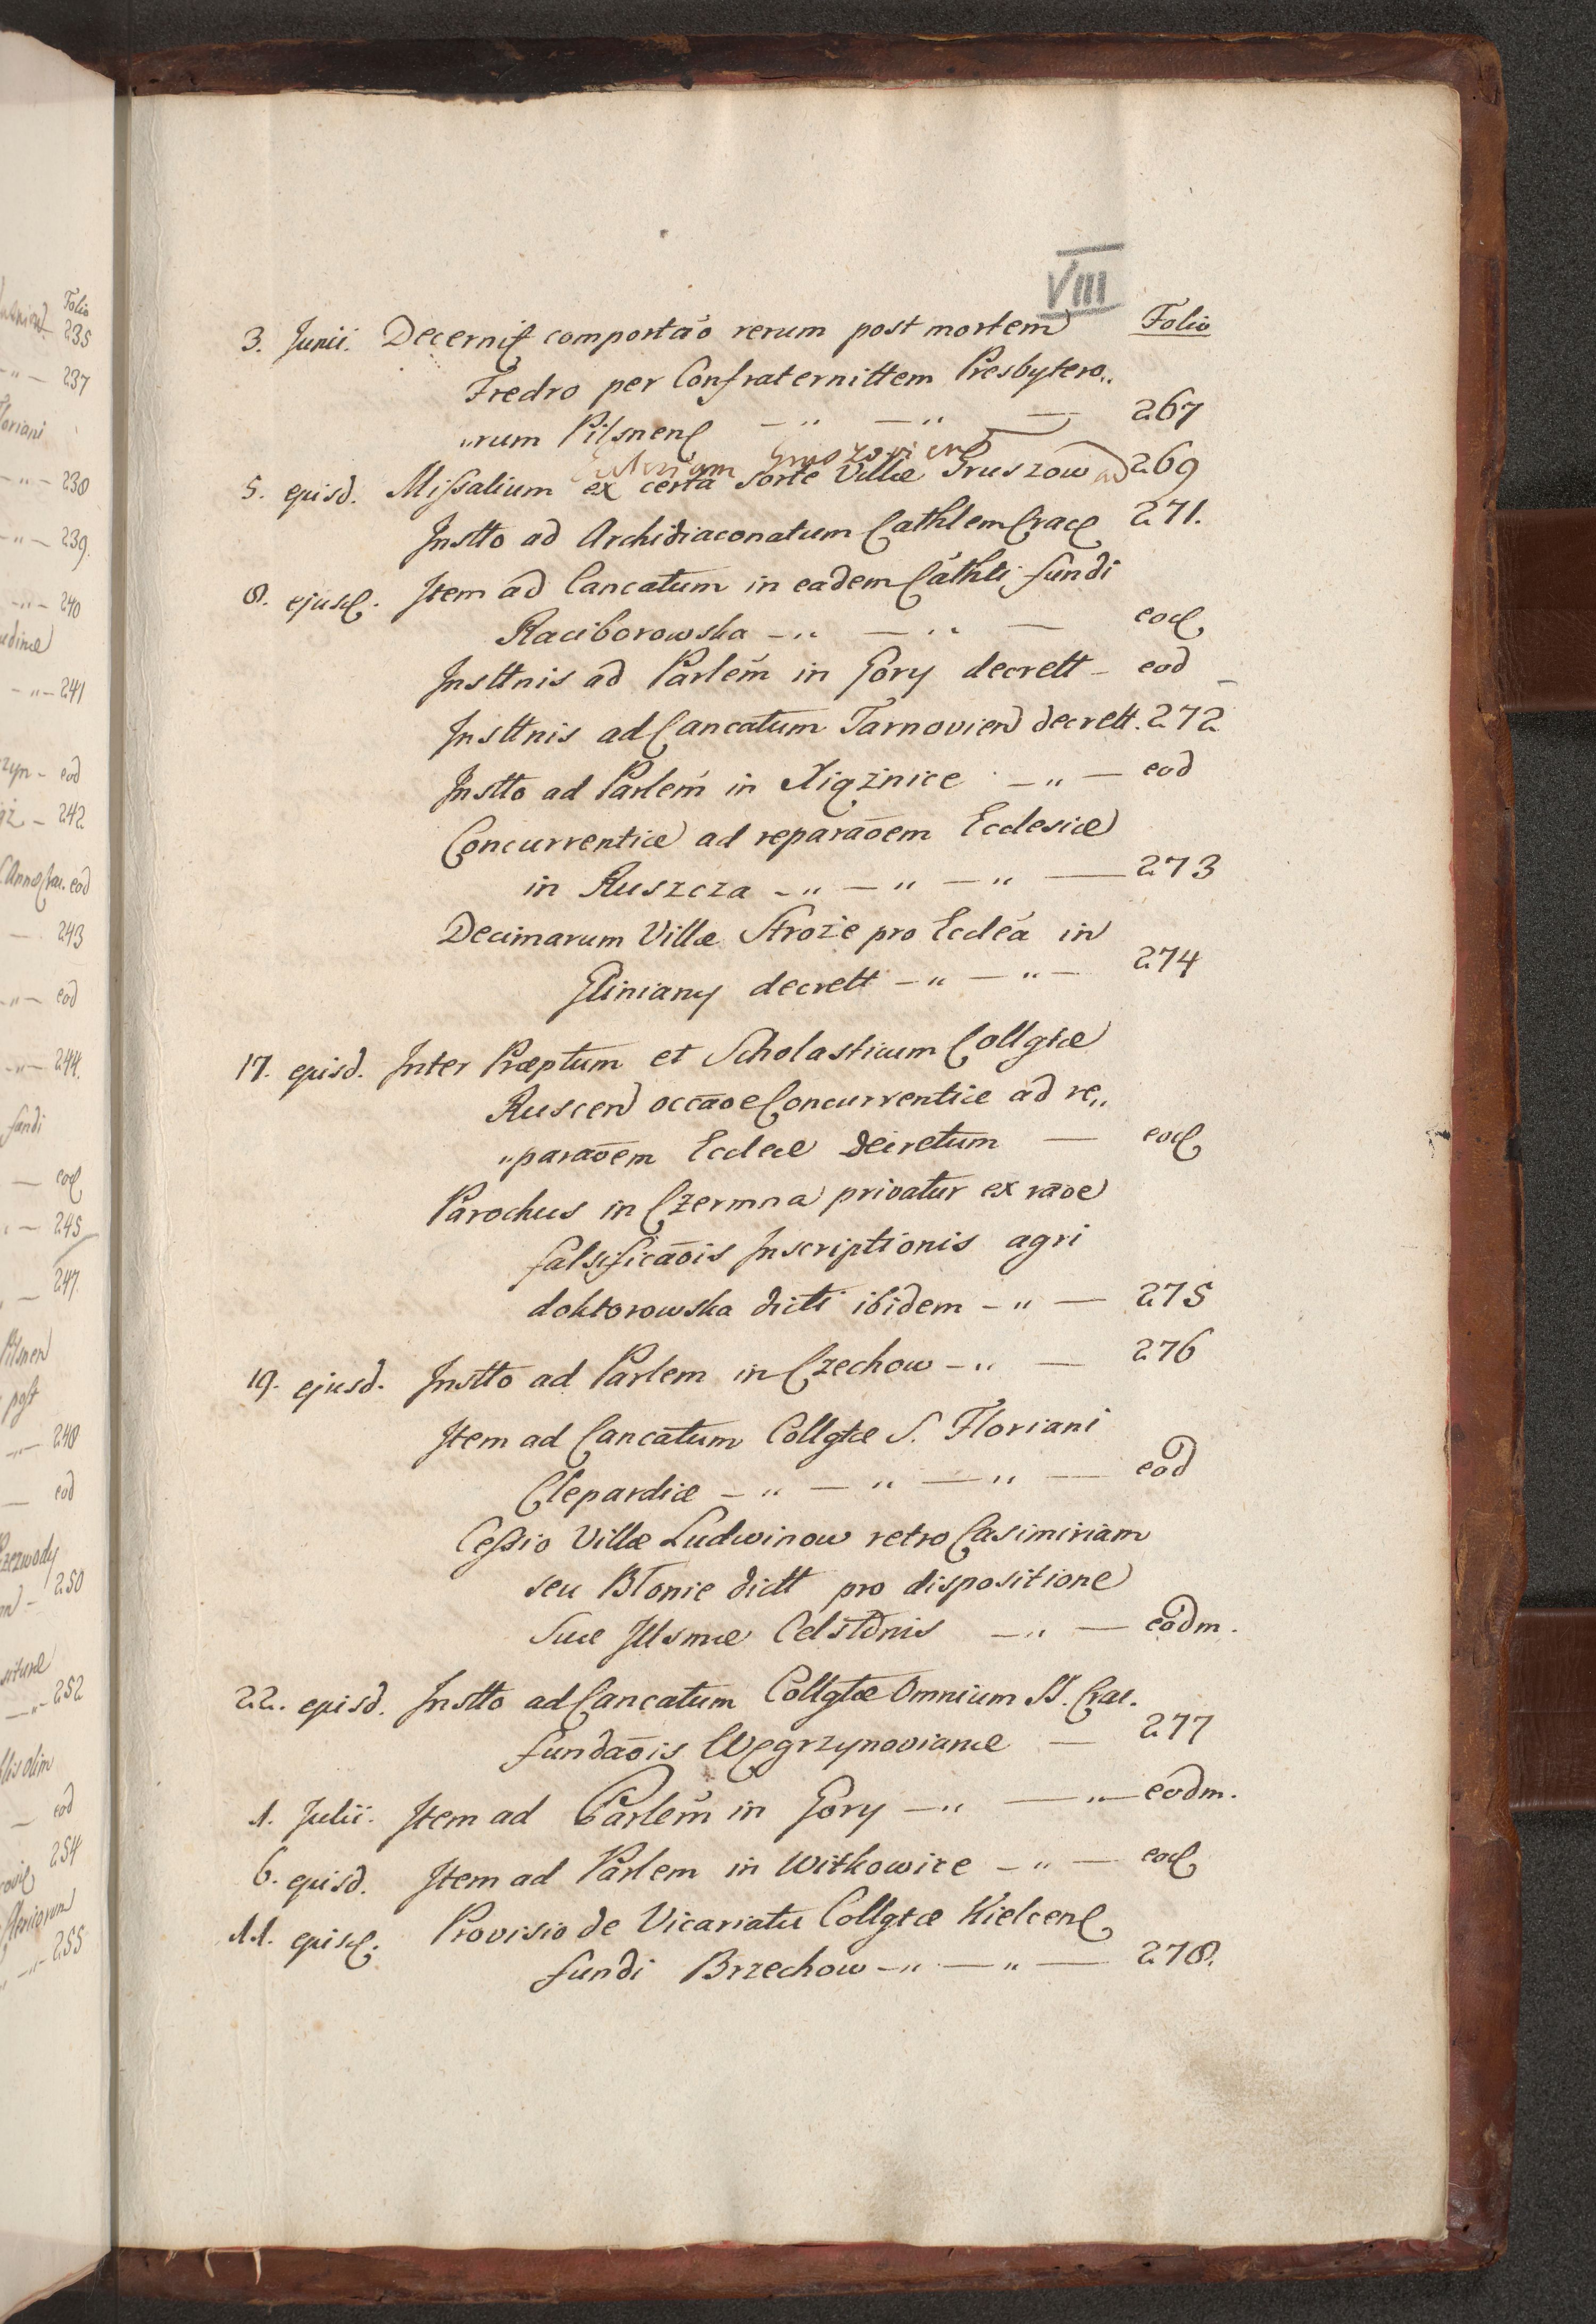 VIII
Folio
3. Junii. Decernit comportao rerum post mortem
Fredro per Confraternittem Presbytero„
„rum Pilsnen — „ — „ — 267
Gruszovien
5. ejusd. Missalium ex certa sorte Villæ Gruszow ad 269
Instto ad Archidiaconatum Cathlem Crac 271.
8. ejusd. Item ad Cancatum in eadem Cathli fundi
Raciborowska — „ — „ — eod
Insttnis ad Parlem in Gory decrett — eod
Insttnis ad Cancatum Tarnovien decrett. 272
Instto ad Parlem in Xiąznice — „ — eod
Concurrentiæ ad reparaōem Ecclesiæ
in Ruszcza — „ — „ — „ — 273
Decimarum Villæ Stroże pro Eccléa in
Gliniany decrett — „ — „ — 274
17. ejusd. Inter Præptum et Scholasticum Collgtæ
Ruscen occāoe Concurrentiæ ad re„
„paraōem Eccleæ decretum — eod
Parochus in Czermna privatur ex rāoe
falsificaōis Inscriptionis agri
doktorowska dicti ibidem — „ — 275
19. ejusd. Instto ad Parlem in Czechow — „ — 276
Item ad Cancatum Collgtæ S. Floriani
Clepardiæ — „ — „ — „ — eod
Cessio Villæ Ludwinow retro Casimiriam
seu Błonie dictt pro dispositione
Suæ Illsmæ Celstdnis — „ — eodm.
22. ejusd. Instto ad Cancatum Collgtæ Omnium SS. Crac.
fundaōis Węgrzynovianæ — 277
1. Julii. Item ad Parlem in Gory — „ — „ — eodm.
6. ejusd. Item ad Parlem in Witkowice — „ — eod
11. ejusd. Provisio de Vicariatu Collgtæ Kielcen
fundi Brzechow — „ — „ — 278.